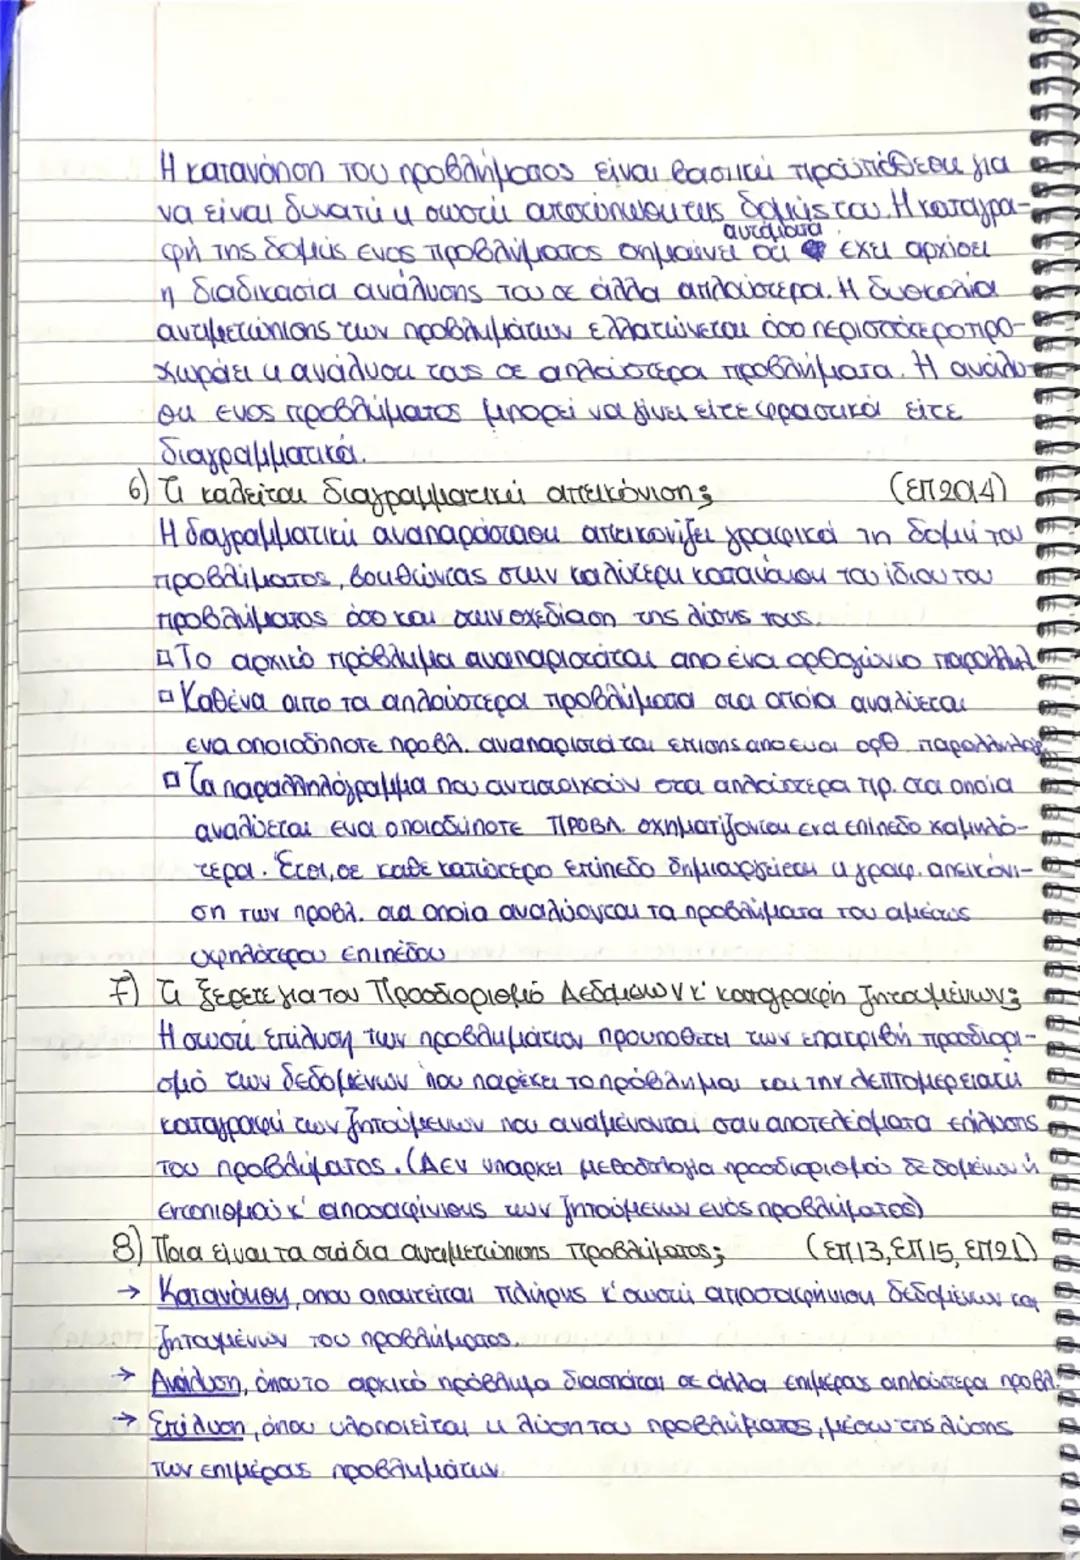 Η κατανόηση του προβλήματος είναι βασική προϋπόθεση για
να είναι δυνατή η σωστή αποτύπωση της δομής του. Η καταγρα-
αυτόματα
φή της δομής ενός προβλήματος σημαίνει ότι έχει αρχίσει
η διαδικασία ανάλυσης του σε άλλα απλούστερα. Η δυσκολία
αντιμετώπισης των προβλημάτων ελλατώνεται όσο περισσότερο προ-
χωράει η ανάλυση τους σε απλούστερα προβλήματα. Η ανάλυ-
ση ενος προβλήματος μπορεί να γίνει είτε φραστικά είτε
διαγραμματικά.
6) Τι καλείται διαγραμματική απεικόνιση; (ΕΠ 2014)
Η διαγραμματική αναπαράσταση απεικονίζει γραφικά τη δομή του
προβλήματος, βοηθώντας στην καλύτερη κατανόηση του ίδιου του
προβλήματος όσο και στην σχεδίαση της λύσης τους.
▫ Το αρχικό πρόβλημα αναπαριστάται από ένα ορθογώνιο παραλληλ.
▫ Καθένα απο τα απλούστερα προβλήματα στα οποία αναλύεται
ένα οποιοδήποτε προβλ. αναπαριστάται επισης απο ενα ορθ. παραλληλόγρ.
▫ Τα παραλληλόγραμμα που αντιστοιχούν στα απλούστερα πρ. στα οποία
αναλύεται ενα οποιοδήποτε ΠΡΟΒΛ. σχηματίζονται ενα επίπεδο χαμηλό-
τερα. Έτσι, σε κάθε κατώτερο επίπεδο δημιουργείται η γραφ. απεικόνι-
ση των προβλ. στα οποία αναλύονται τα προβλήματα του αμέσως
υψηλότερου επιπέδου
7) Τι ξέρετε για τον Προσδιορισμό Δεδομένων κ' καταγραφή Ζητουμένων;
Η σωστή επίλυση των προβλημάτων προυποθετει των επακριβή προσδιορι-
σμό των δεδομένων που παρέχει το πρόβλημα και την λεπτομερειακή
καταγραφή των ζητούμενων που αναμένονται σαν αποτελέσματα επίλυσης
του προβλήματος. (Δεν υπαρχει μεθοδολογία προσδιορισμού δεδομένων ή
εντοπισμού κ' αποσαφίνισης των ζητούμενων ενός προβλήματος)
8) Ποια είναι τα στάδια αντιμετώπισης προβλήματος; (ΕΠ 13, ΕΠ 15, ΕΠ 21)
→ Κατανόηση, οπου απαιτείται πλήρης κ' σωστή αποσαφήνιση δεδομένων και
ζητουμένων του προβλήματος.
→ Ανάλυση, όπου το αρχικό πρόβλημα διασπάται σε άλλα επιμέρους απλούστερα προβλ.
→ Επίλυση, όπου υλοποιείται η λύση του προβλήματος, μέσω της λύσης
των επιμέρους προβλημάτων.